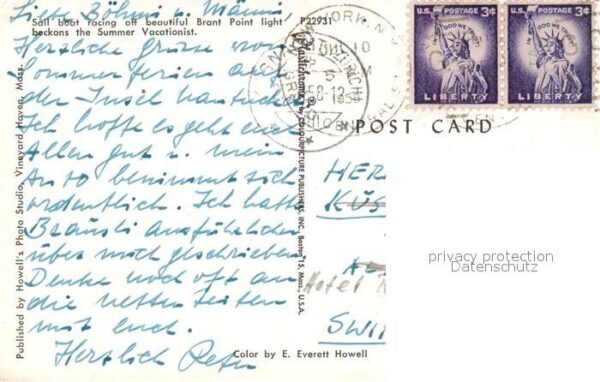 Sail boat racing off beautiful Brant Point light
beckons the Summer Vacationist.
P22931
Liebe
Herzliche Grüsse von
Sommerferien auf
der Insel Nantucket
Ich hoffe es geht euch
Allen gut u. mein
benimmt sich
ordentlich. Ich hatte
Bräusli ausführlicher
über mich geschrieben
Denke noch oft an
die netten Zeiten
mit euch.
Herzlich Peter
Published by Howell's Photo Studio, Vineyard Haven, Mass.
Plastichrome by COLOURPICTURE PUBLISHERS, INC., Boston 15, Mass., U.S.A.
Color by E. Everett Howell
U.S. POSTAGE 3¢
IN GOD WE TRUST
LIBERTY
U.S. POSTAGE 3¢
IN GOD WE TRUST
LIBERTY
POST CARD
HER
KÜS
Hotel
SWI
privacy protection
Datenschutz